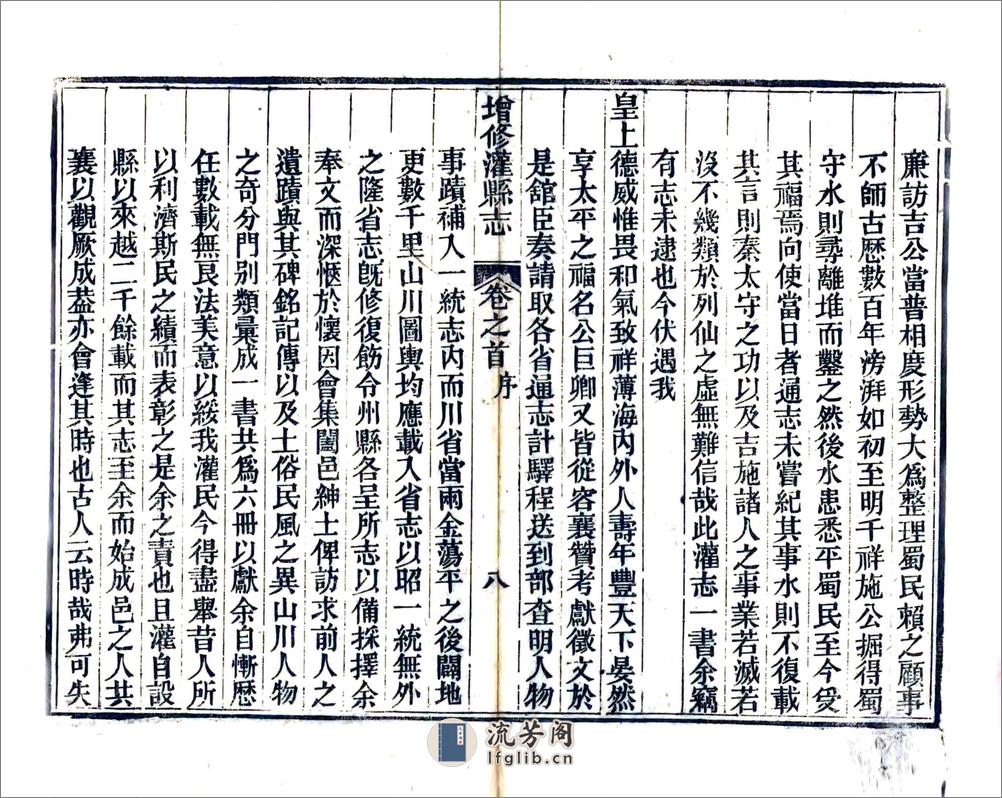 廉訪吉公當普相慶形勢大爲整理蜀民賴之顧事
不師古歷數百年滂湃如初至明千祥施公掘得蜀
守水則尋離堆而鑿之然後水患悉平蜀民至今受
其福焉向使當日者通志未嘗紀其事水則不復載
其言則秦太守之功以及吉施諸人之事業若滅若
沒不幾類於列仙之虛無難信哉此灌志一書余竊
有志未逮也今伏遇我
皇上德威惟畏和氣致祥薄海內外人壽年豐天下晏然
享太平之福名公巨卿又皆從容襄贊考獻徵文於
是舘臣奏請取各省通志計驛程送到部查明人物
增修灌縣志 卷之首 序 八
事蹟補入一統志內而川省當兩金蕩平之後闢地
更數千里山川圖輿均應載入省志以昭一統無外
之隆省志旣修復飭令州縣各呈所志以備採擇余
奉文而深愜於懷因會集闔邑紳士俾訪求前人之
遺蹟與其碑銘記傳以及土俗民風之異山川人物
之奇分門別類彙成一書共爲六冊以獻余自慚歷
任數載無良法美意以綏我灌民今得盡舉昔人所
以利濟斯民之績而表彰之是余之責也且灌自設
縣以來越二千餘載而其志至余而始成邑之人共
襄以觀厥成葢亦會逢其時也古人云時哉弗可失
流芳阁
lfglib.cn